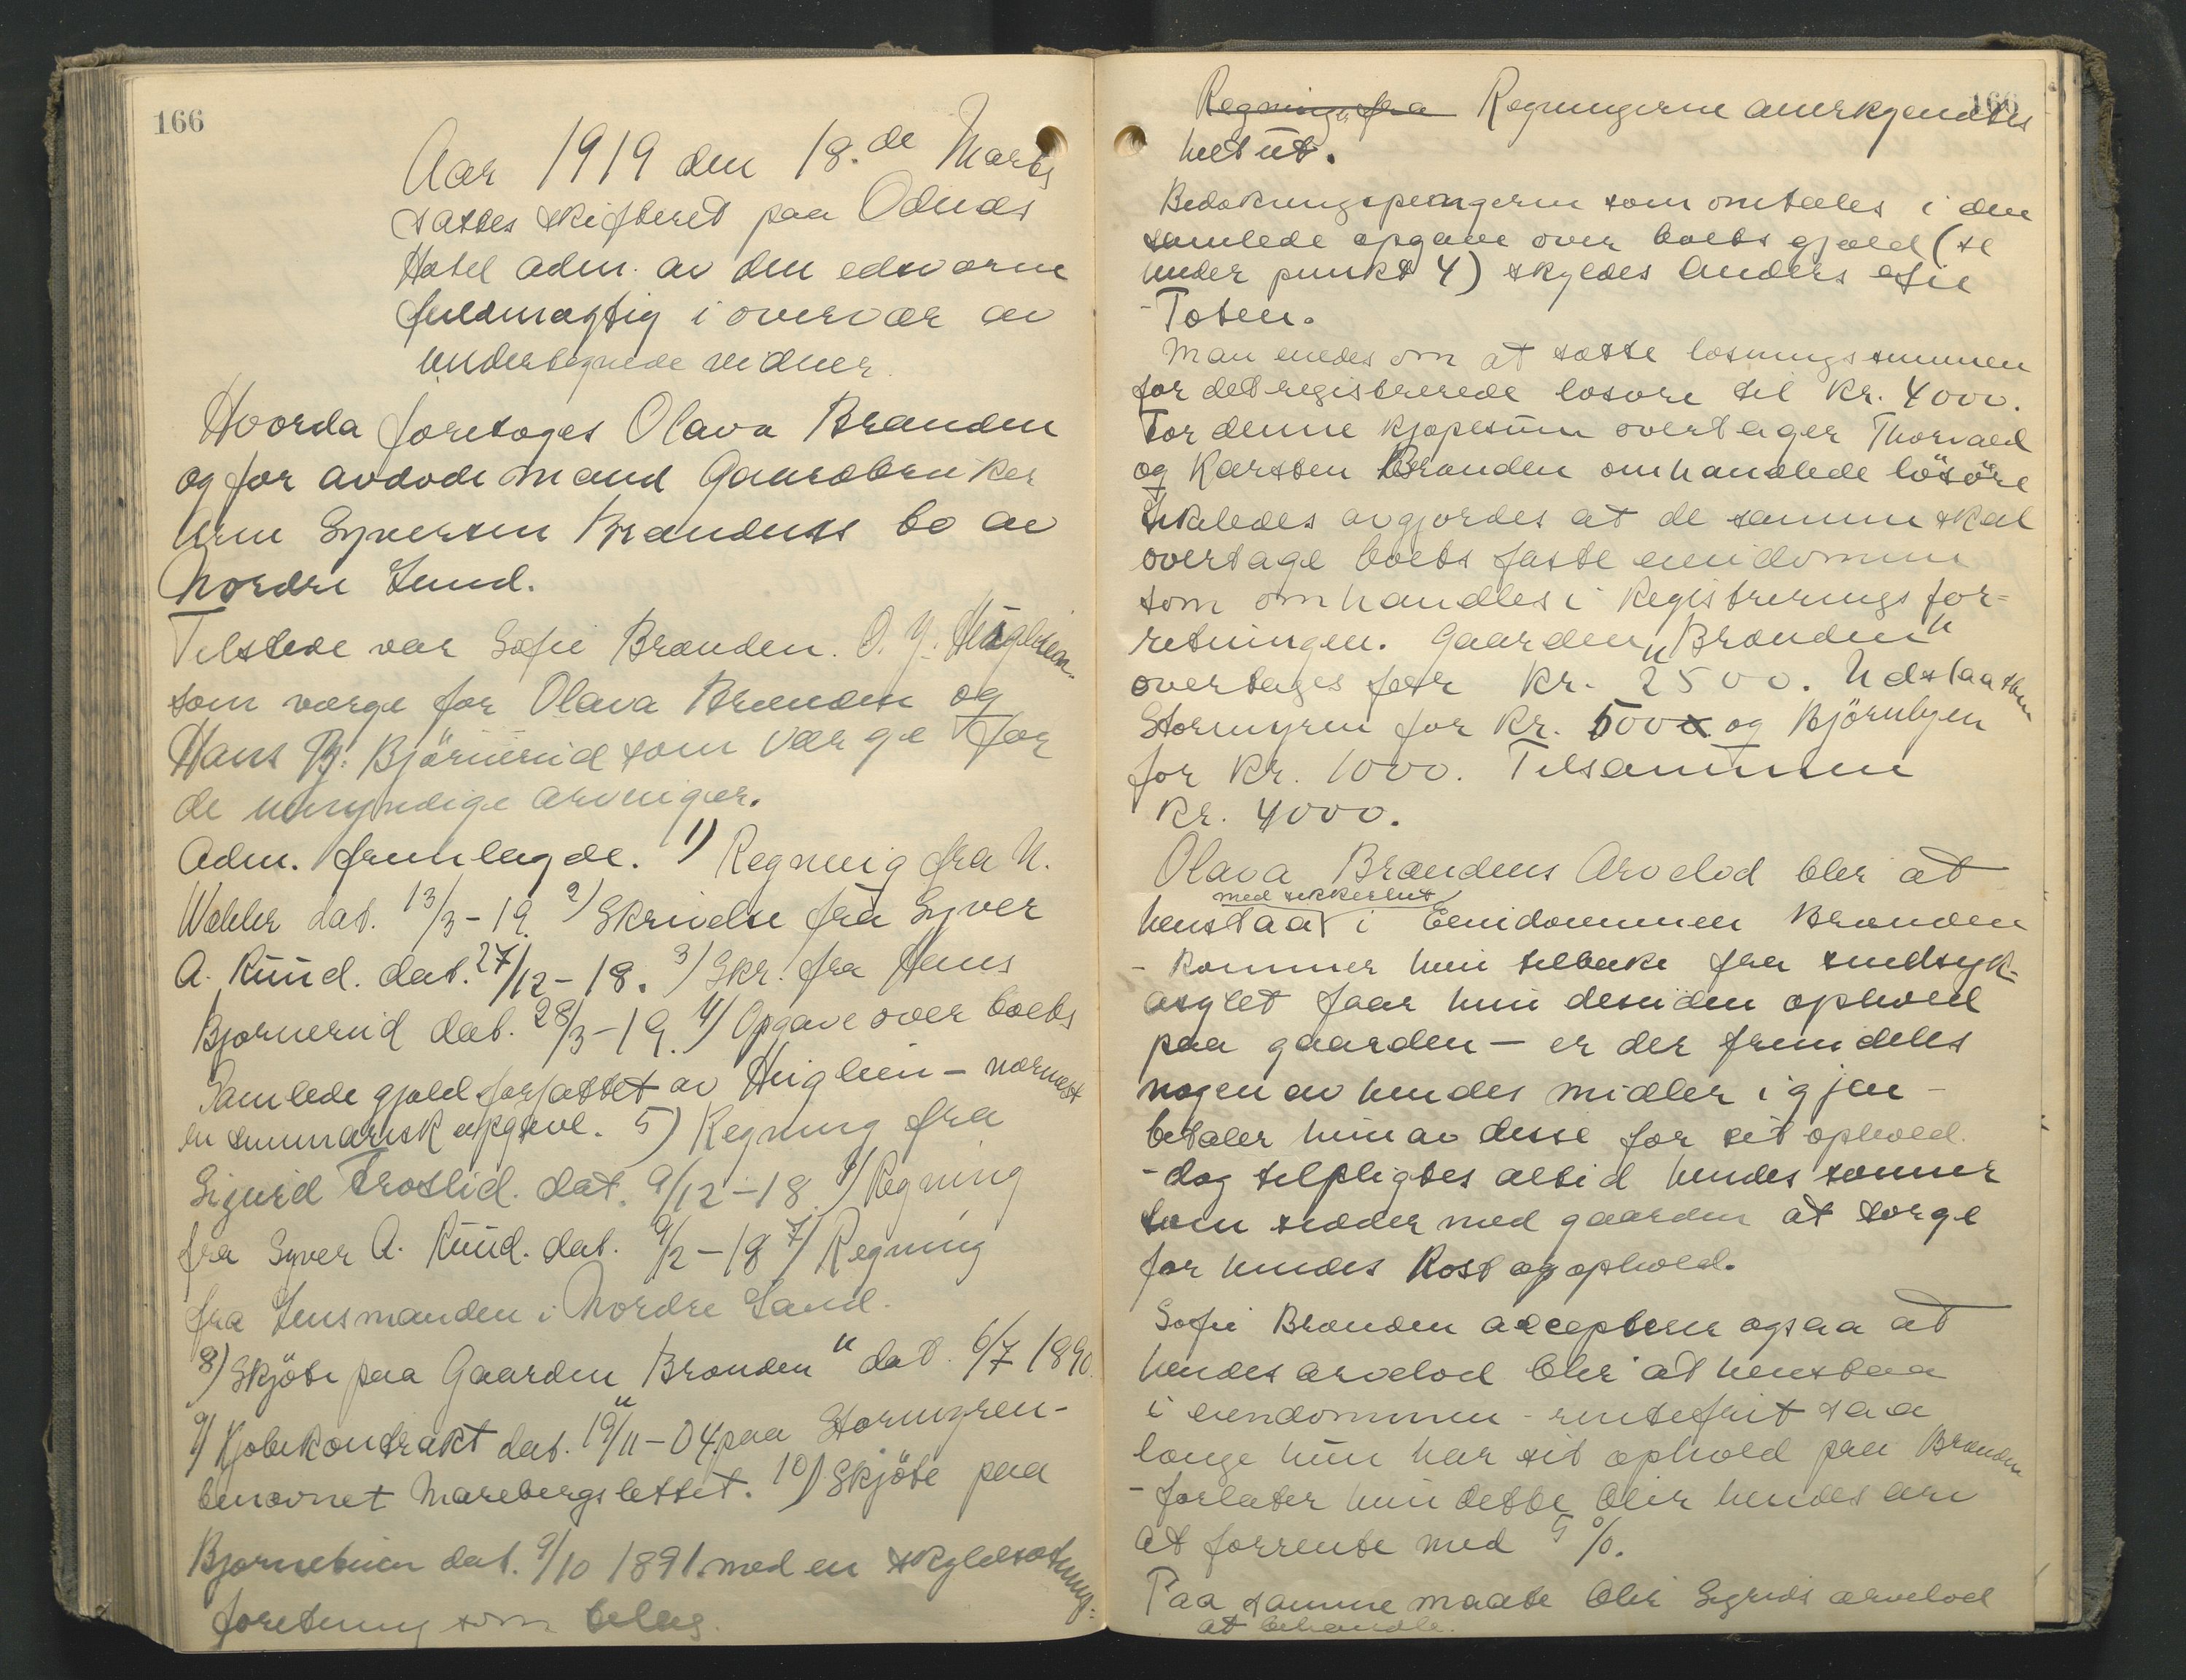 166
Aar 1919 den 18.de Marts
sattes skifteret paa Odnes
Hotel adm. av den edsvorne
fuldmægtig i overvær av
undertegnede vidner.
Hvorda foretoges Olava Brænden
og for avdøde mand Gaardbruker
Arne Syversen Brændens bo av
Nordre Land.
Tilstede var Sofie Brænden. O. J. Huglien
som værge for Olava Brænden og
Hans B. Björnerud som værge for
de umyndige arvinger.
Adm. fremlagde. 1) Regning fra N.
Wæhler dat. 13/3-19. 2) Skrivelse fra Syver
A. Ruud. dat. 27/12-18. 3) Skr. fra Hans
Bjørnerud dat. 28/3-19. 4) Opgave over boets
samlede gjæld forfattet av Huglien - nærmest
en summarisk opgave. 5) Regning fra
Sigurd Trøslid. dat. 9/12-18 6) Regning
fra Syver A. Ruud. dat. 9/2-18 7) Regning
fra Lensmanden i Nordre Land.
8) Skjöte paa Gaarden „Brænden" dat. 6/7 1890.
9) Kjøbekontrakt dat. 19/11-04 paa Stormyren-
benævnet Marebergslettet. 10) Skjöte paa
Bjørnebuen dat. 9/10 1891 med en skyldsætning:
foretning som bilag.
166
Regninge fra Regningerne anerkjendtes
helt ut.
Bedækningspengerne som omtales i den
samlede opgave over boets gjæld (se
under punkt 4) skyldes Anders
- Toten.
Man enedes om at sætte løsningssummen
for det registrerede løsøre til Kr. 4000.
For denne kjøpesum overtager Thorvald
og Karsten Brænden omhandlede lösöre
Likeledes avgjordes at de samme skal
overtage boets faste eiendomme
som omhandles i Registrerings for-
retningen. Gaarden „Brænden"
overtages for Kr. 2500. Udslaatten
Stormyren for Kr. 500 og Björnbyen
for Kr. 1000. Tilsammen
Kr. 4000.
Olava Brændens Arvelod blir at
med sikkerhet
henstaa i Eiendommen Brænden
- kommer hun tilbake fra sindsyk-
asylet faar hun desuden ophold
paa gaarden - er der fremdeles
nogen av hendes midler igjen -
betaler hun av disse for sit ophold.
- dog tilpligtes altid hendes sønner
som sidder med gaarden at sørge
for hendes Kost og ophold.
Sofie Brænden accepterer ogsaa at
hendes arvelod blir at henstaa
i eiendommen - rentefrit saa
længe hun har sit ophold paa Brænden
- forlater hun dette blir hendes arv
at forrente med 5 %.
Paa samme maate blir Sigrids arvelod
at behandle.